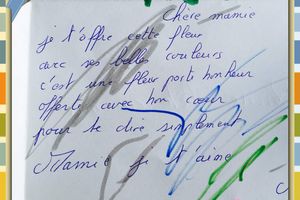 Chère mamie
je t'offre cette fleur
avec ses belles couleurs
c'est une fleur porte bonheur
offerte avec mon cœur
pour te dire simplement
Mamie je t'aime